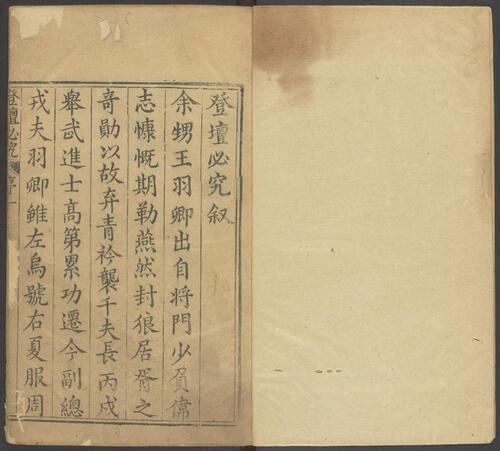 登壇必究叙
余甥王羽卿出自将門少負偉
志慷慨期勒燕然封狼居胥之
奇勛以故弃青衿襲千夫長丙戌
舉武進士高第累功遷今副總
戎夫羽卿雖左烏號右夏服周
登壇必究 序一